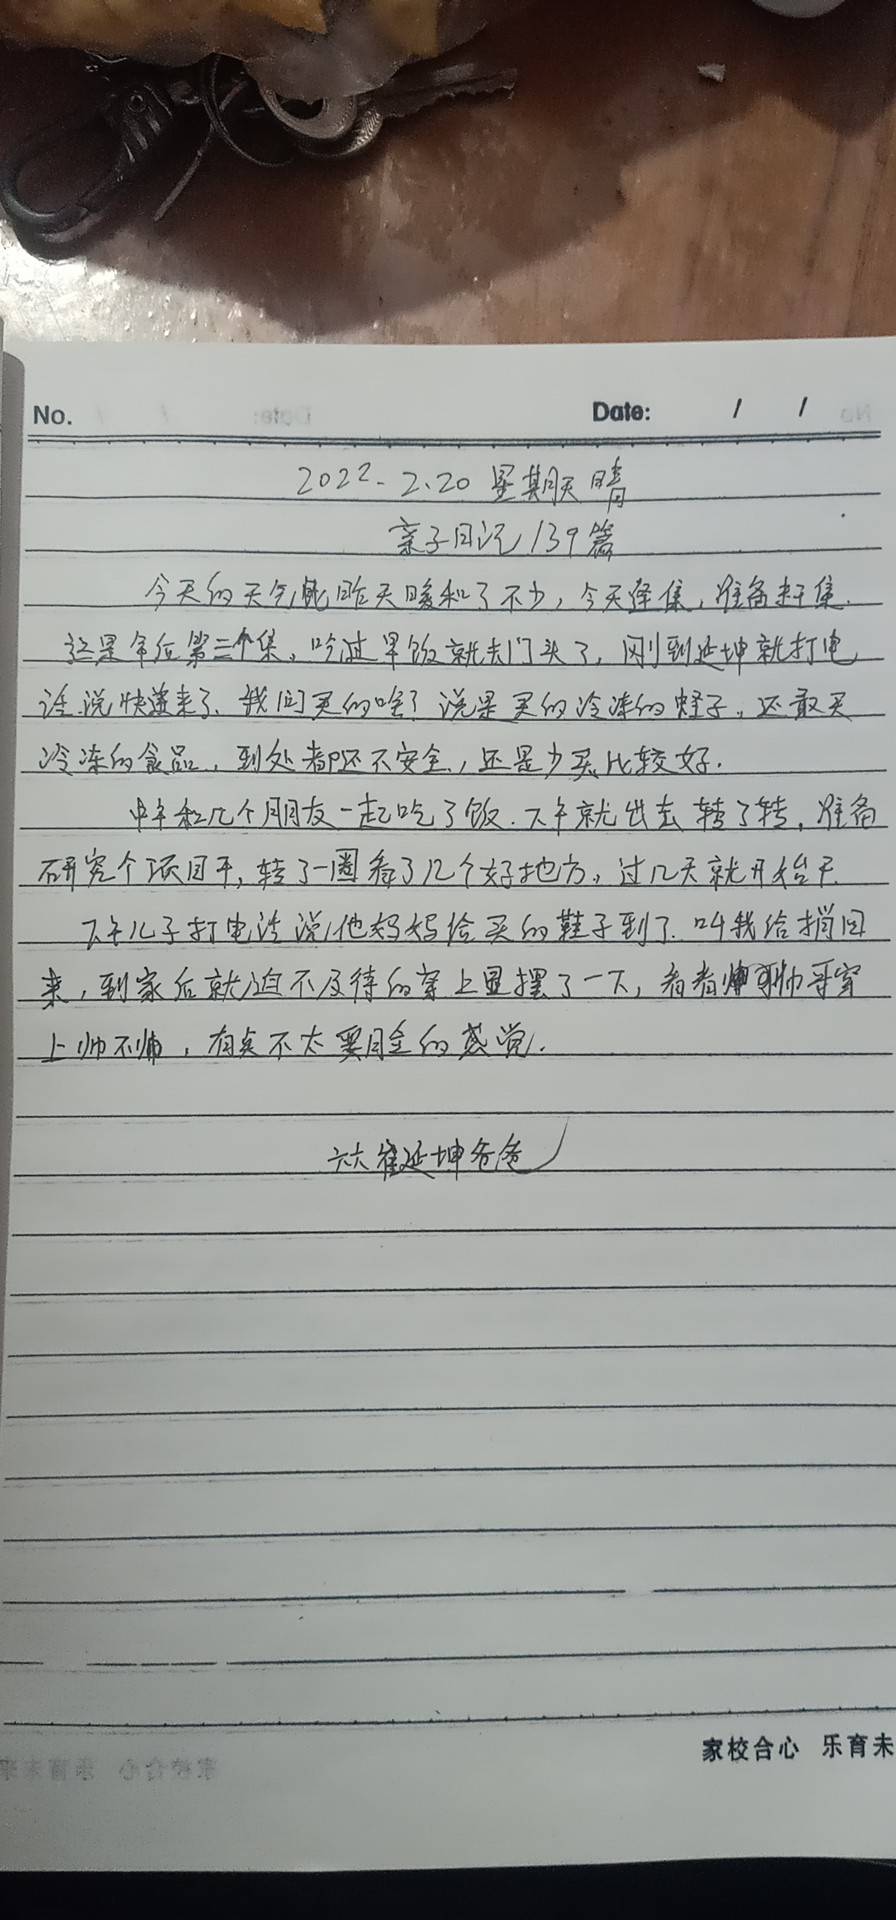 No. Date: / /
2022-2.20 星期天 晴
亲子日记139篇
今天的天气比昨天暖和了不少，今天逢集，准备赶集.
这是年后第三个集，吃过早饭就去门头了，刚到延坤就打电
话说快递来了，我问买的啥？说是买的冷冻的蛏子，还敢买
冷冻的食品，到处都还不安全，还是少买比较好.
中午和几个朋友一起吃了饭.下午就出去转了转，准备
研究个项目干，转了一圈看了几个好地方，过几天就开始干.
下午儿子打电话说他妈妈给买的鞋子到了.叫我给捎回
来，到家后就迫不及待的穿上显摆了一下，看看帅哥穿
上帅不帅，有点不太要脸的感觉.
六六崔延坤爸爸
家校合心 乐育未